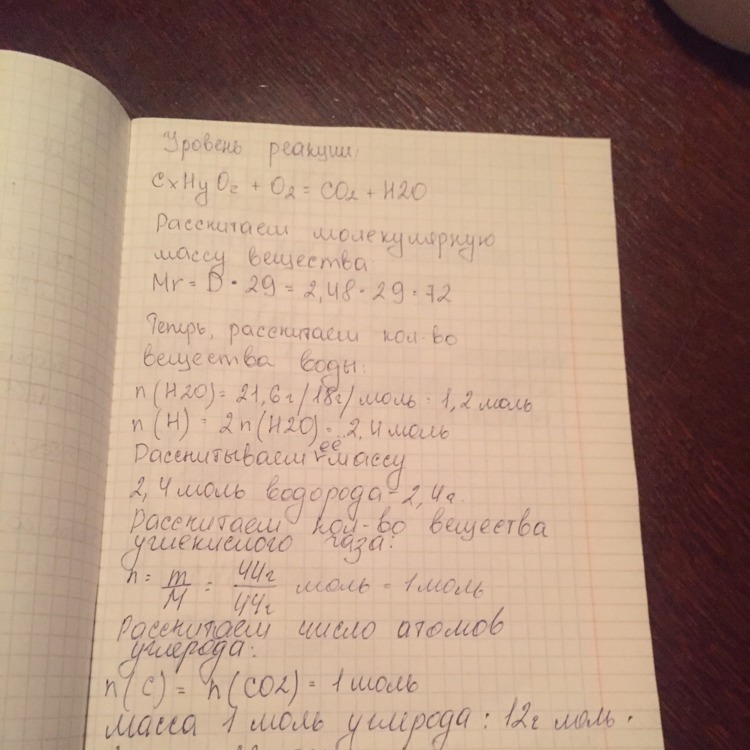 Уровень реакции:
CxHyOz + O2 = CO2 + H2O
Рассчитаем молекулярную
массу вещества
Mr = D · 29 = 2,48 · 29 = 72
Теперь, рассчитаем кол-во
вещества воды:
n(H2O) = 21,6г/18г/моль = 1,2 моль
n(H) = 2n(H2O) = 2,4 моль
Рассчитываем её массу
2,4 моль водорода = 2,4г.
Рассчитаем кол-во вещества
углекислого газа:
n = m/M = 44г/44г моль = 1 моль
Рассчитаем число атомов
углерода:
n(C) = n(CO2) = 1 моль
масса 1 моль углерода: 12г моль.